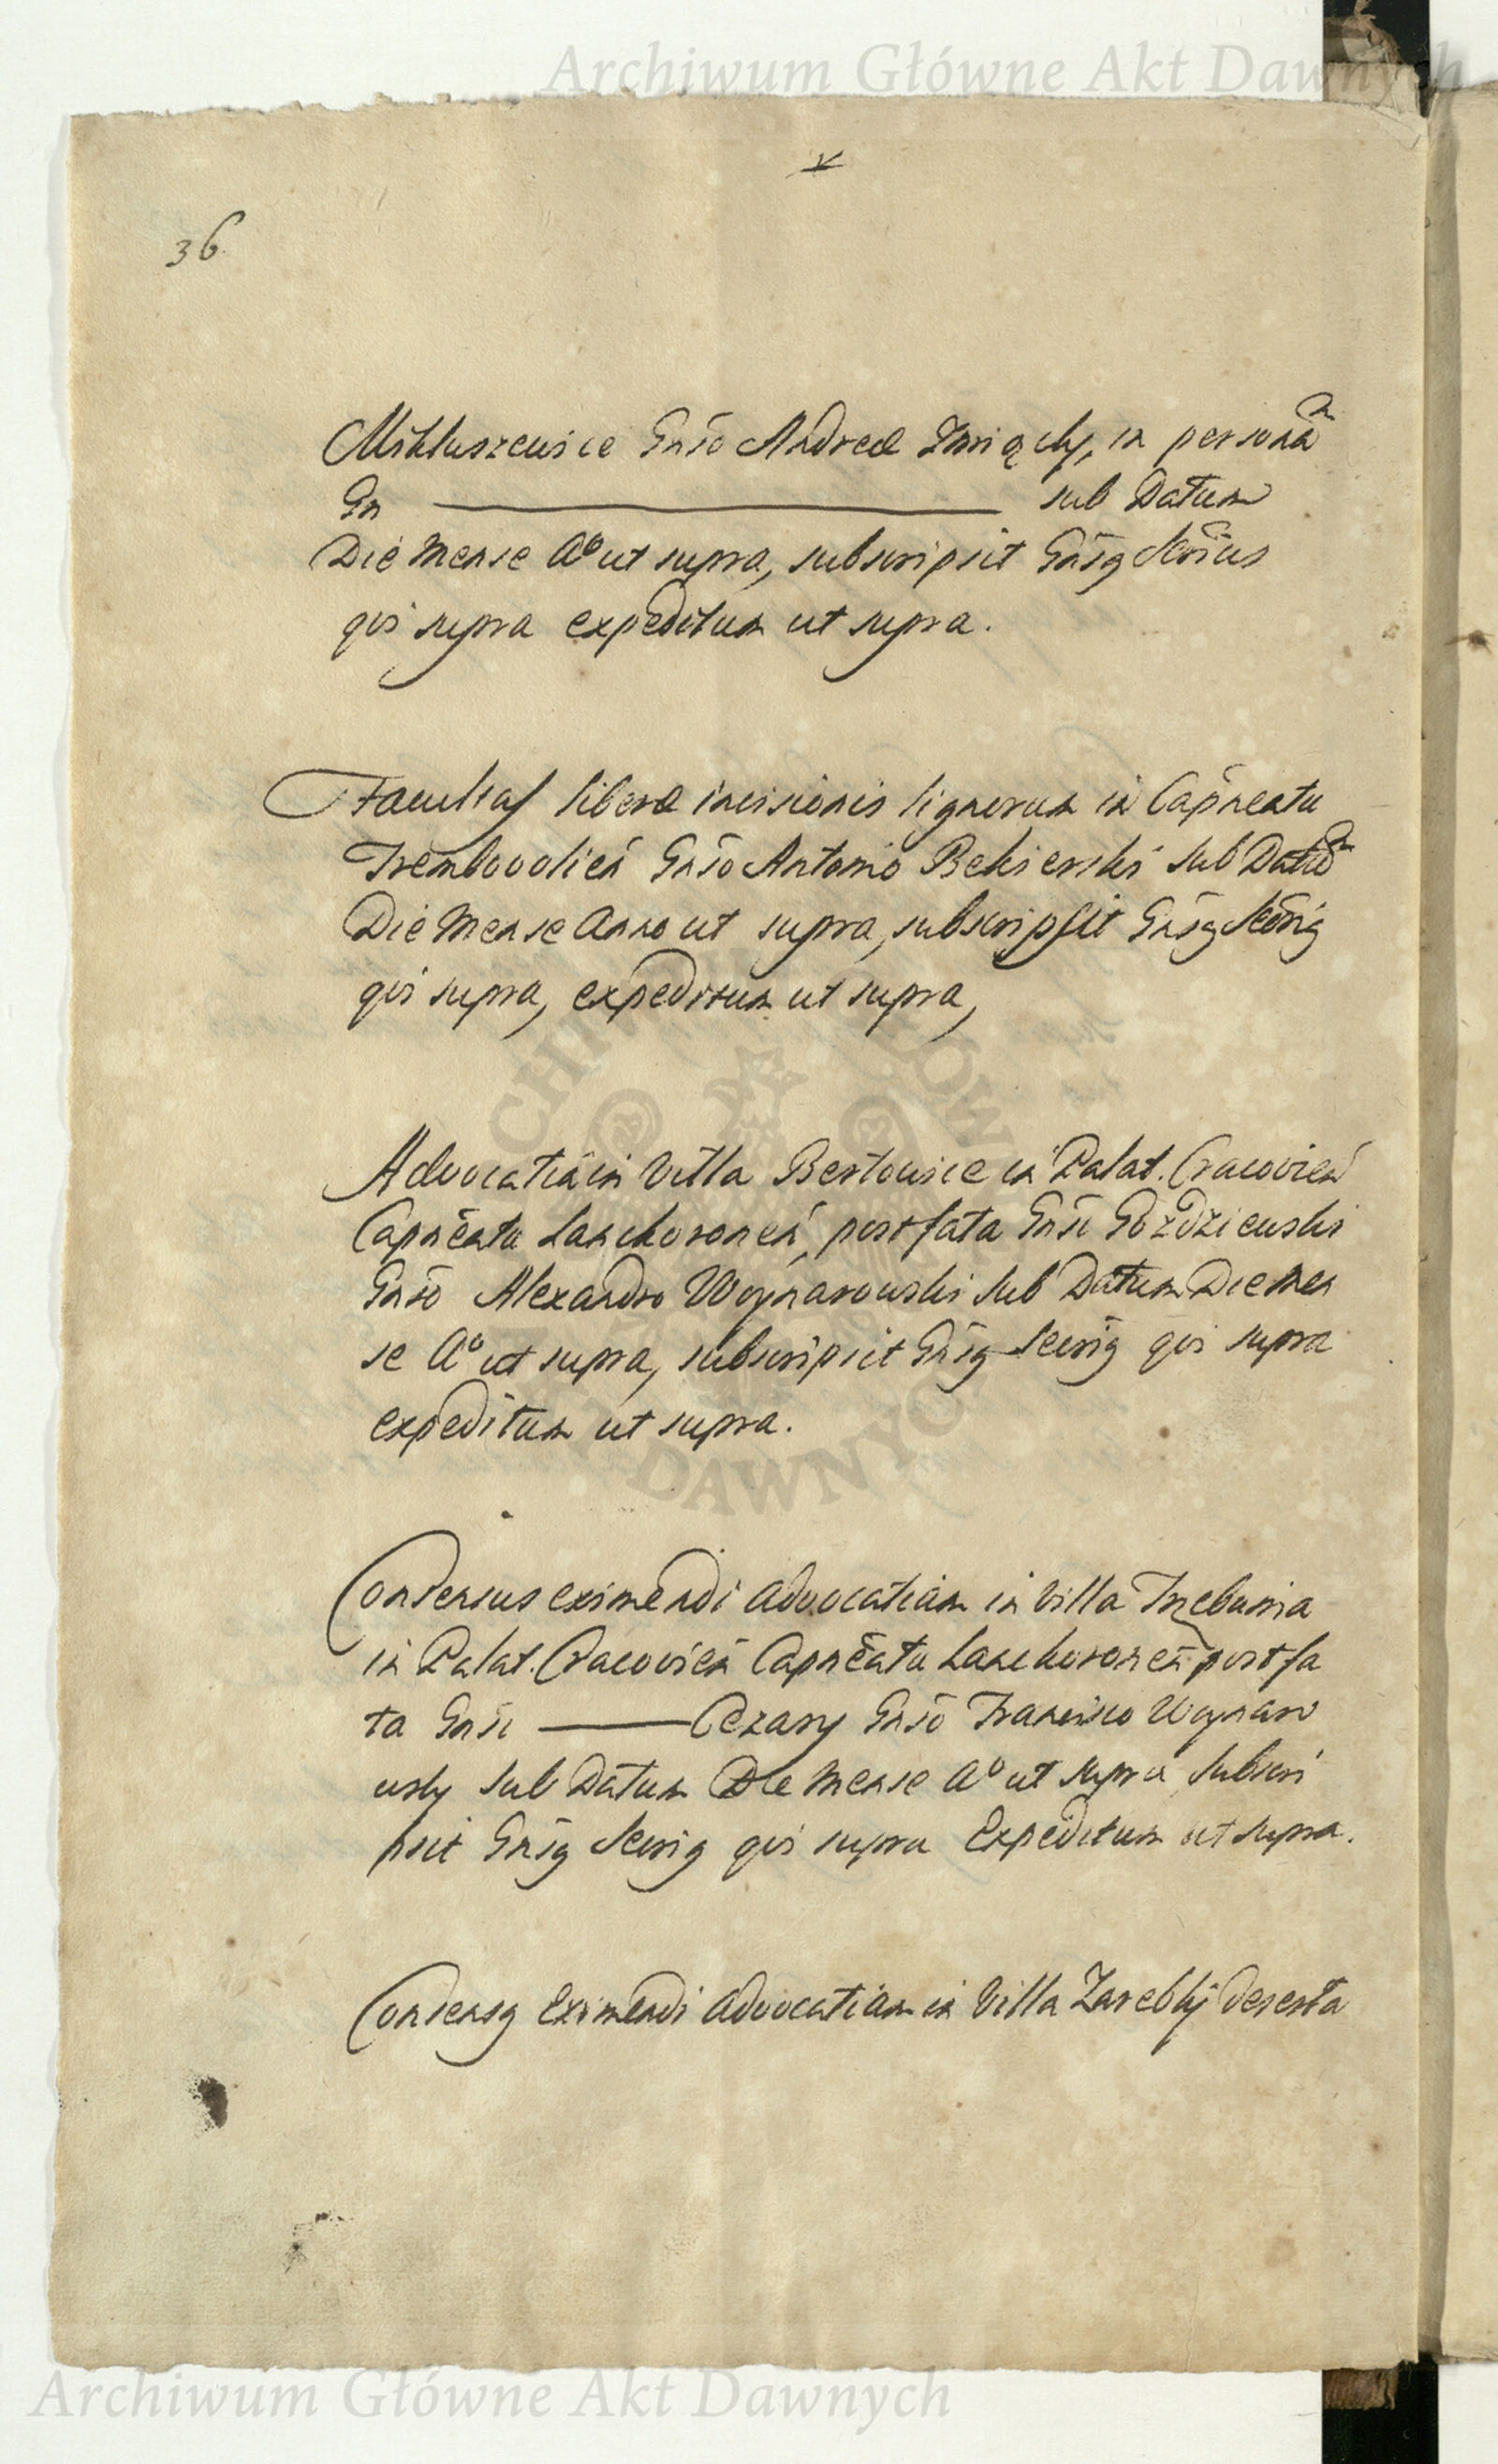 Archiwum Główne Akt Dawnych
36
Mikluszewice Gnso Andreæ in personam
Gn ——— sub Datum
Die Mense Aº ut supra, subscripsit Gnsg Scrius
qui supra expeditum ut supra.
Facultas liberæ incisionis lignorum in Capneatu
Trembovolien Gnso Antonio Bekierski sub Datum
Die Mense Anno ut supra, subscripsit Gnsg Secrig
qui supra, expeditum ut supra,
Advocatia in Villa Bertowice in Palat. Cracovien
Capneatu Lanckoronen, post fata Gnsi Gozdziewski
Gnso Alexandro Woynarowski sub Datum Die Men
se Aº ut supra, subscripsit Gnsg Secrig qui supra
expeditum ut supra.
Consensus eximendi advocatiam in Villa Trzebunia
in Palat. Cracovien Capneatu Lanckoronen post fa
ta Gnsi ——— Cezary Gnso Francisco Woynaro
wsky sub Datum Die Mense Aº ut supra subscri
psit Gnsg Secrig qui supra Expeditum ut supra.
Consensg Eximendi advocatiam in Villa Zarebky deserta
CHIWUM GŁÓW
DAWNYC
Archiwum Główne Akt Dawnych